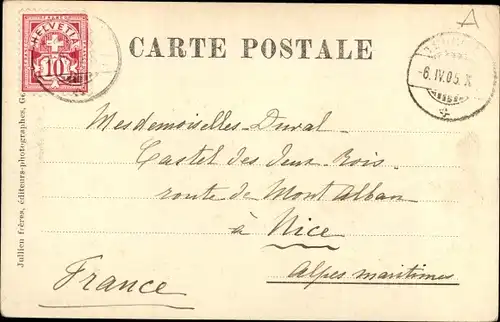 HELVETIA
10
CARTE POSTALE
A
-6.IV.05.X
Mesdemoiselles Duval
Castel des deux Rois
route de Mont Alban
à Nice
Alpes maritimes
France
Jullien frères, éditeurs-photographes, Ge